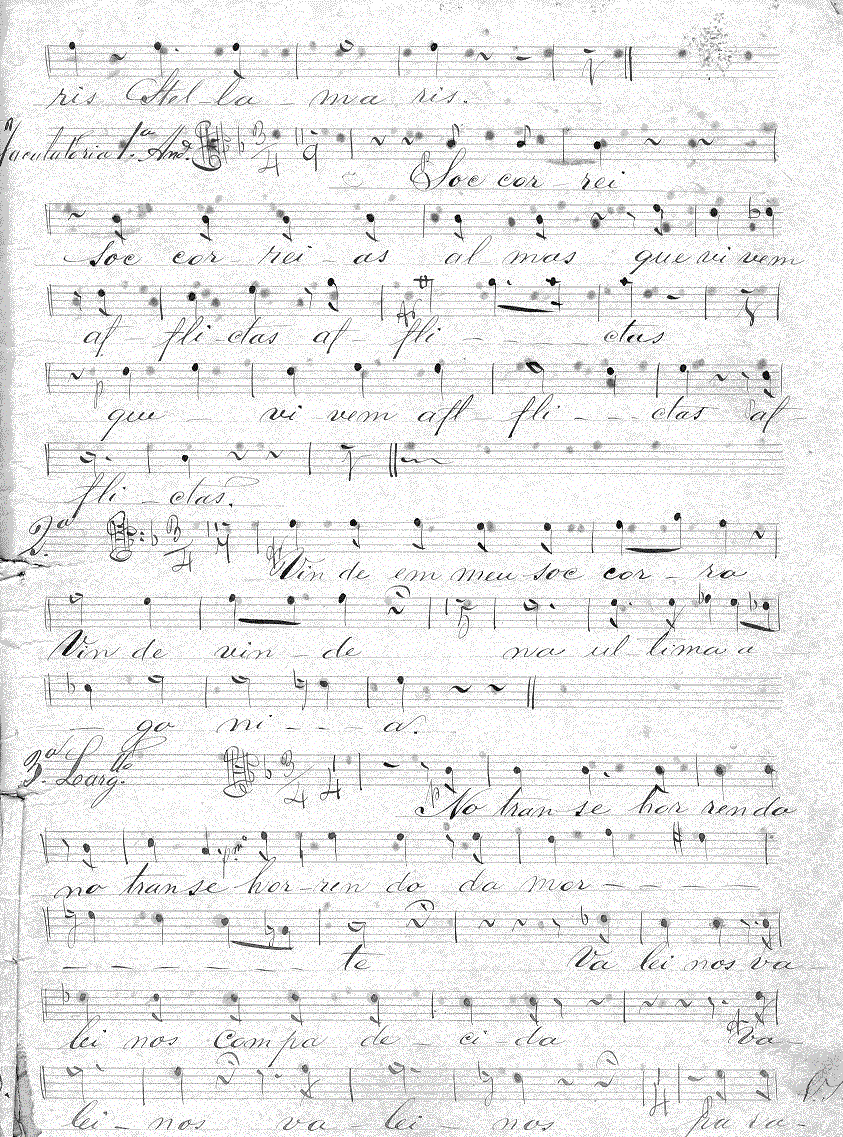 ris Stel-la - ma ris.
Jaculatoria 1.ª And.e 3/4 9
E Soc cor - rei
Soc cor - rei - as al mas que vi vem
af - fli - ctas af - fli - - - - ctas
que - vi vem afl - fli - - - ctas af
fli - ctas.
2ª 3/4 7
Vin de em meu soc cor - ro
Vin de vin - de 15 na ul - tima a
- go ni - - - a.
3ª Larg.tto 3/4 4
No tran se hor rendo
no tran se hor - ren do da mor - - - - -
- - - - - - - te Va lei nos va
lei nos compa de - ci - da Va -
lei - nos va - lei - nos 4 pa ra -